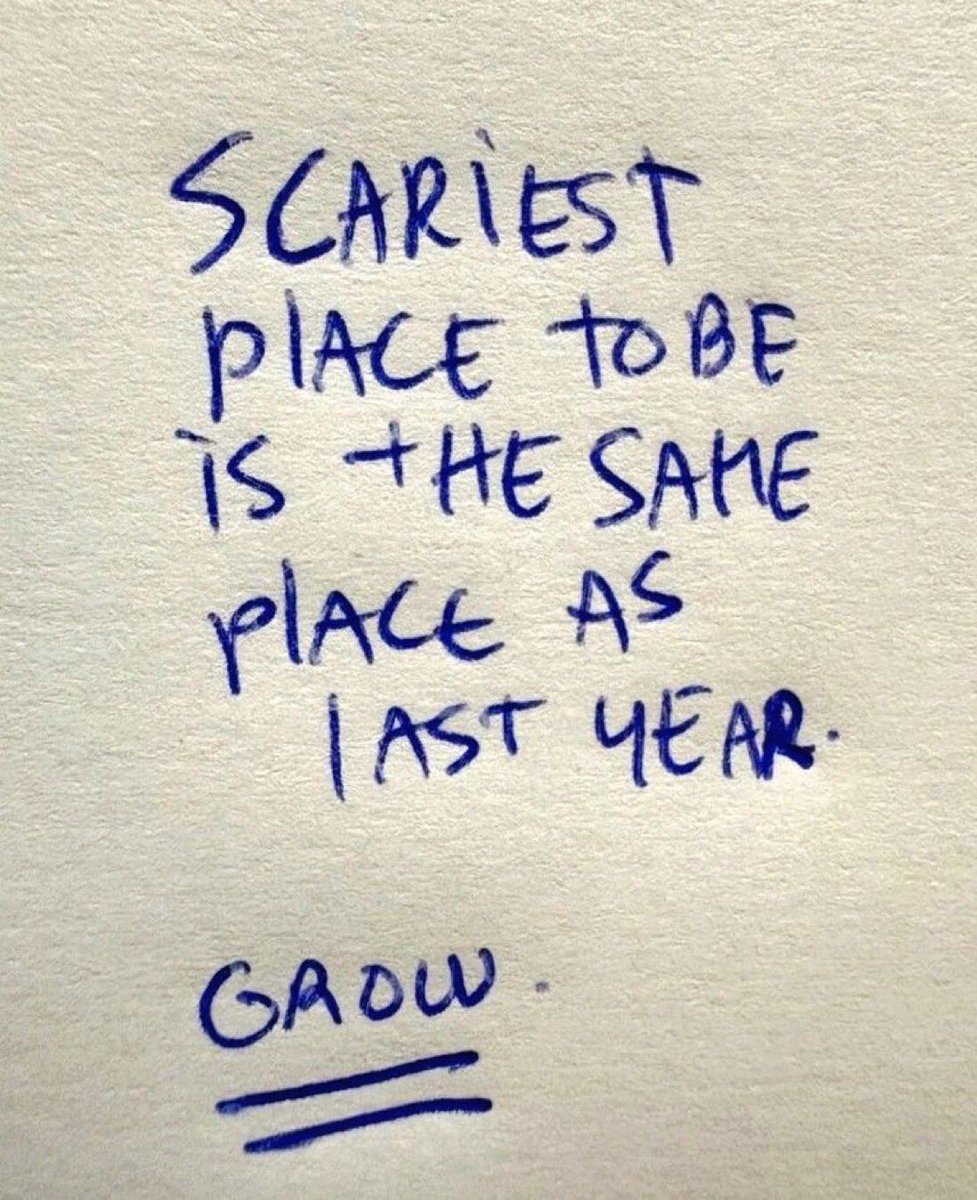 SCARiEST
PlACE to BE
is tHE SAME
PlACE AS
lAST YEAR.
GROW.